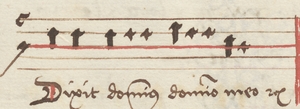 Dixit dominus domino meo rex